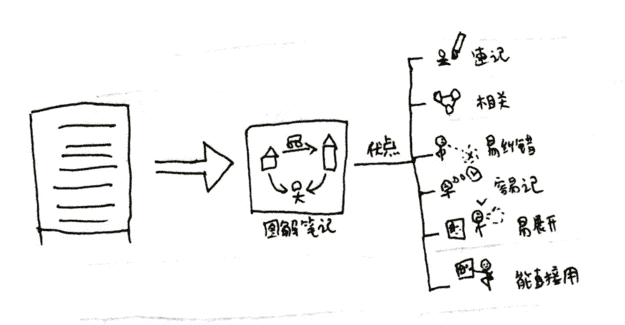 图解笔记
优点
速记
相关
易纠错
容易记
易展开
能直接用